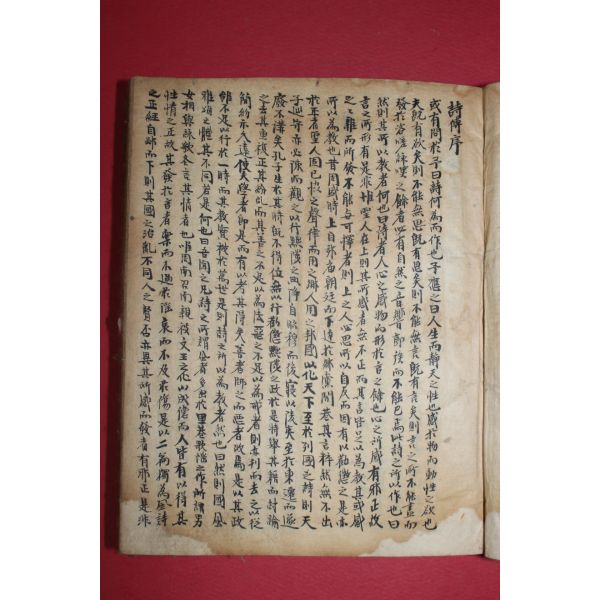 詩傳序
或有問於予曰詩何為而作也予應之曰人生而靜天之性也感於物而動性之欲也
夫既有欲矣則不能無思既有思矣則不能無言既有言矣則言之所不能盡而
發於咨嗟詠嘆之餘者必有自然之音響節族而不能已焉此詩之所以作也曰
然則其所以教者何也曰詩者人心之感物而形於言之餘也心之所感有邪正故
言之所形有是非惟聖人在上則其所感者無不正而其言皆足以為教其或感
之之雜而所發不能無可擇者則上之人必思所以自反而因有以勸懲之是亦
所以為教也昔周盛時上自郊廟朝廷而下達於鄉黨閭巷其言粹然無不出
於正者聖人固已協之聲律而用之鄉人用之邦國以化天下至於列國之詩則天
子巡守亦必陳而觀之以行黜陟之典降自昭穆而後寖以陵夷至於東遷而遂
廢不講矣孔子生於其時既不得位無以行勸懲黜陟之政於是特舉其籍而討論
之去其重復正其紛亂而其善之不足以為法惡之不足以為戒者則亦刊而去之以從
簡約示久遠使夫學者即是而有以考其得失善者師之而惡者改焉是以其政
雖不足以行於一時而其教實被於萬世是則詩之所以為教者然也曰然則國風
雅頌之體其不同若是何也曰吾聞之凡詩之所謂風者多出於里巷歌謠之作所謂男
女相與詠歌各言其情者也唯周南召南親被文王之化以成德而人皆有以得其
性情之正故其發於言者樂而不過於淫哀而不及於傷是以二篇獨為風詩
之正經自邶而下則其國之治亂不同人之賢否亦異其所感而發者有邪正是非